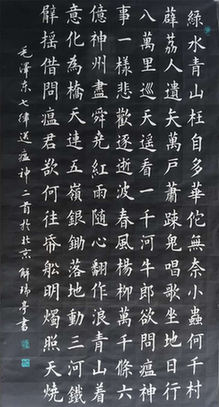 綠水青山枉自多華佗無奈小蟲何千村
薜荔人遺矢萬戶蕭疎鬼唱歌坐地日行
八萬里巡天遥看一千河牛郎欲問瘟神
事一樣悲歡逐逝波春風楊柳萬千條六
億神州盡舜堯紅雨隨心翻作浪青山着
意化為橋天連五嶺銀鋤落地動三河鐵
臂摇借問瘟君欲何往紙船明燭照天燒
毛澤東七律送瘟神二首於北京解瑞亭書